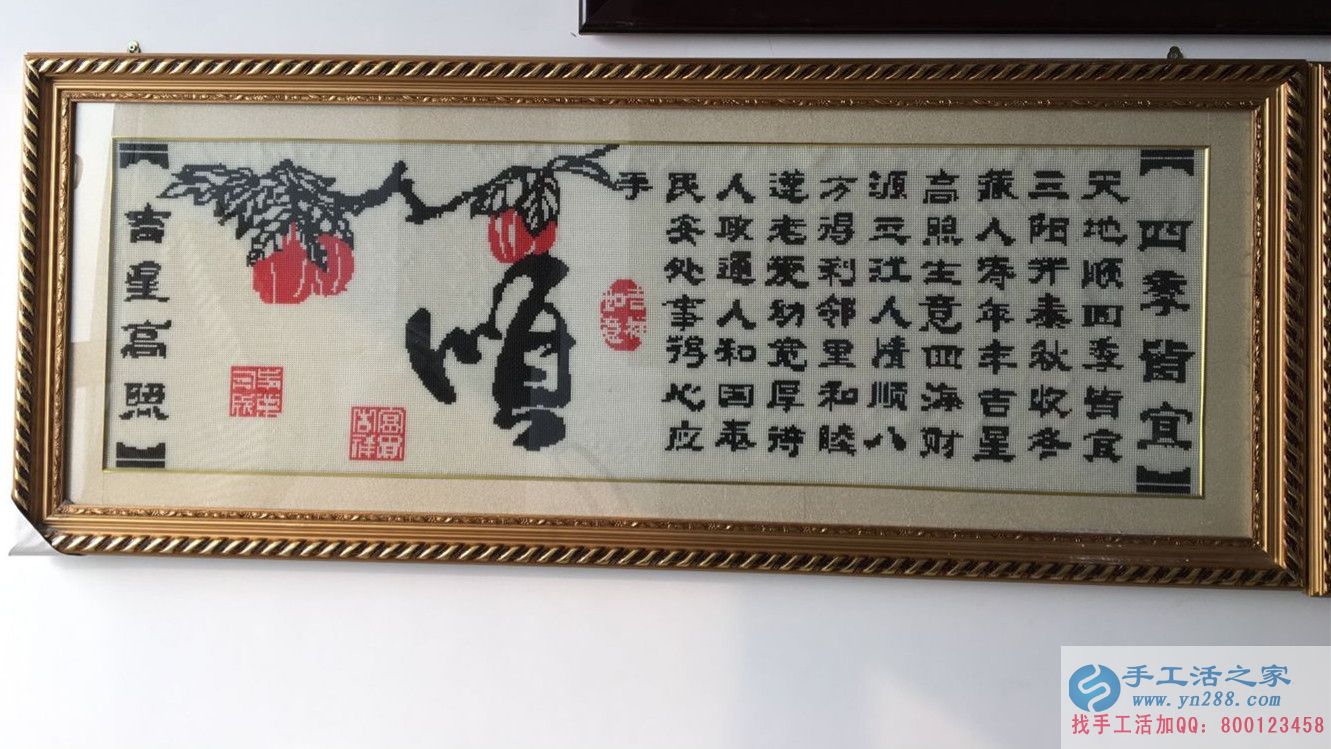 四季皆宜
天地顺四季皆宜
三阳开泰秋收冬
藏人寿年丰吉星
高照生意四海财
源三江人情顺八
方得利邻里和睦
遵老爱幼宽厚待
人政通人和国泰
民安处事得心应
手
吉祥
如意
顺
富贵
吉祥
吉星高照
手工活之家
www.yn288.com
找手工活加QQ：800123458